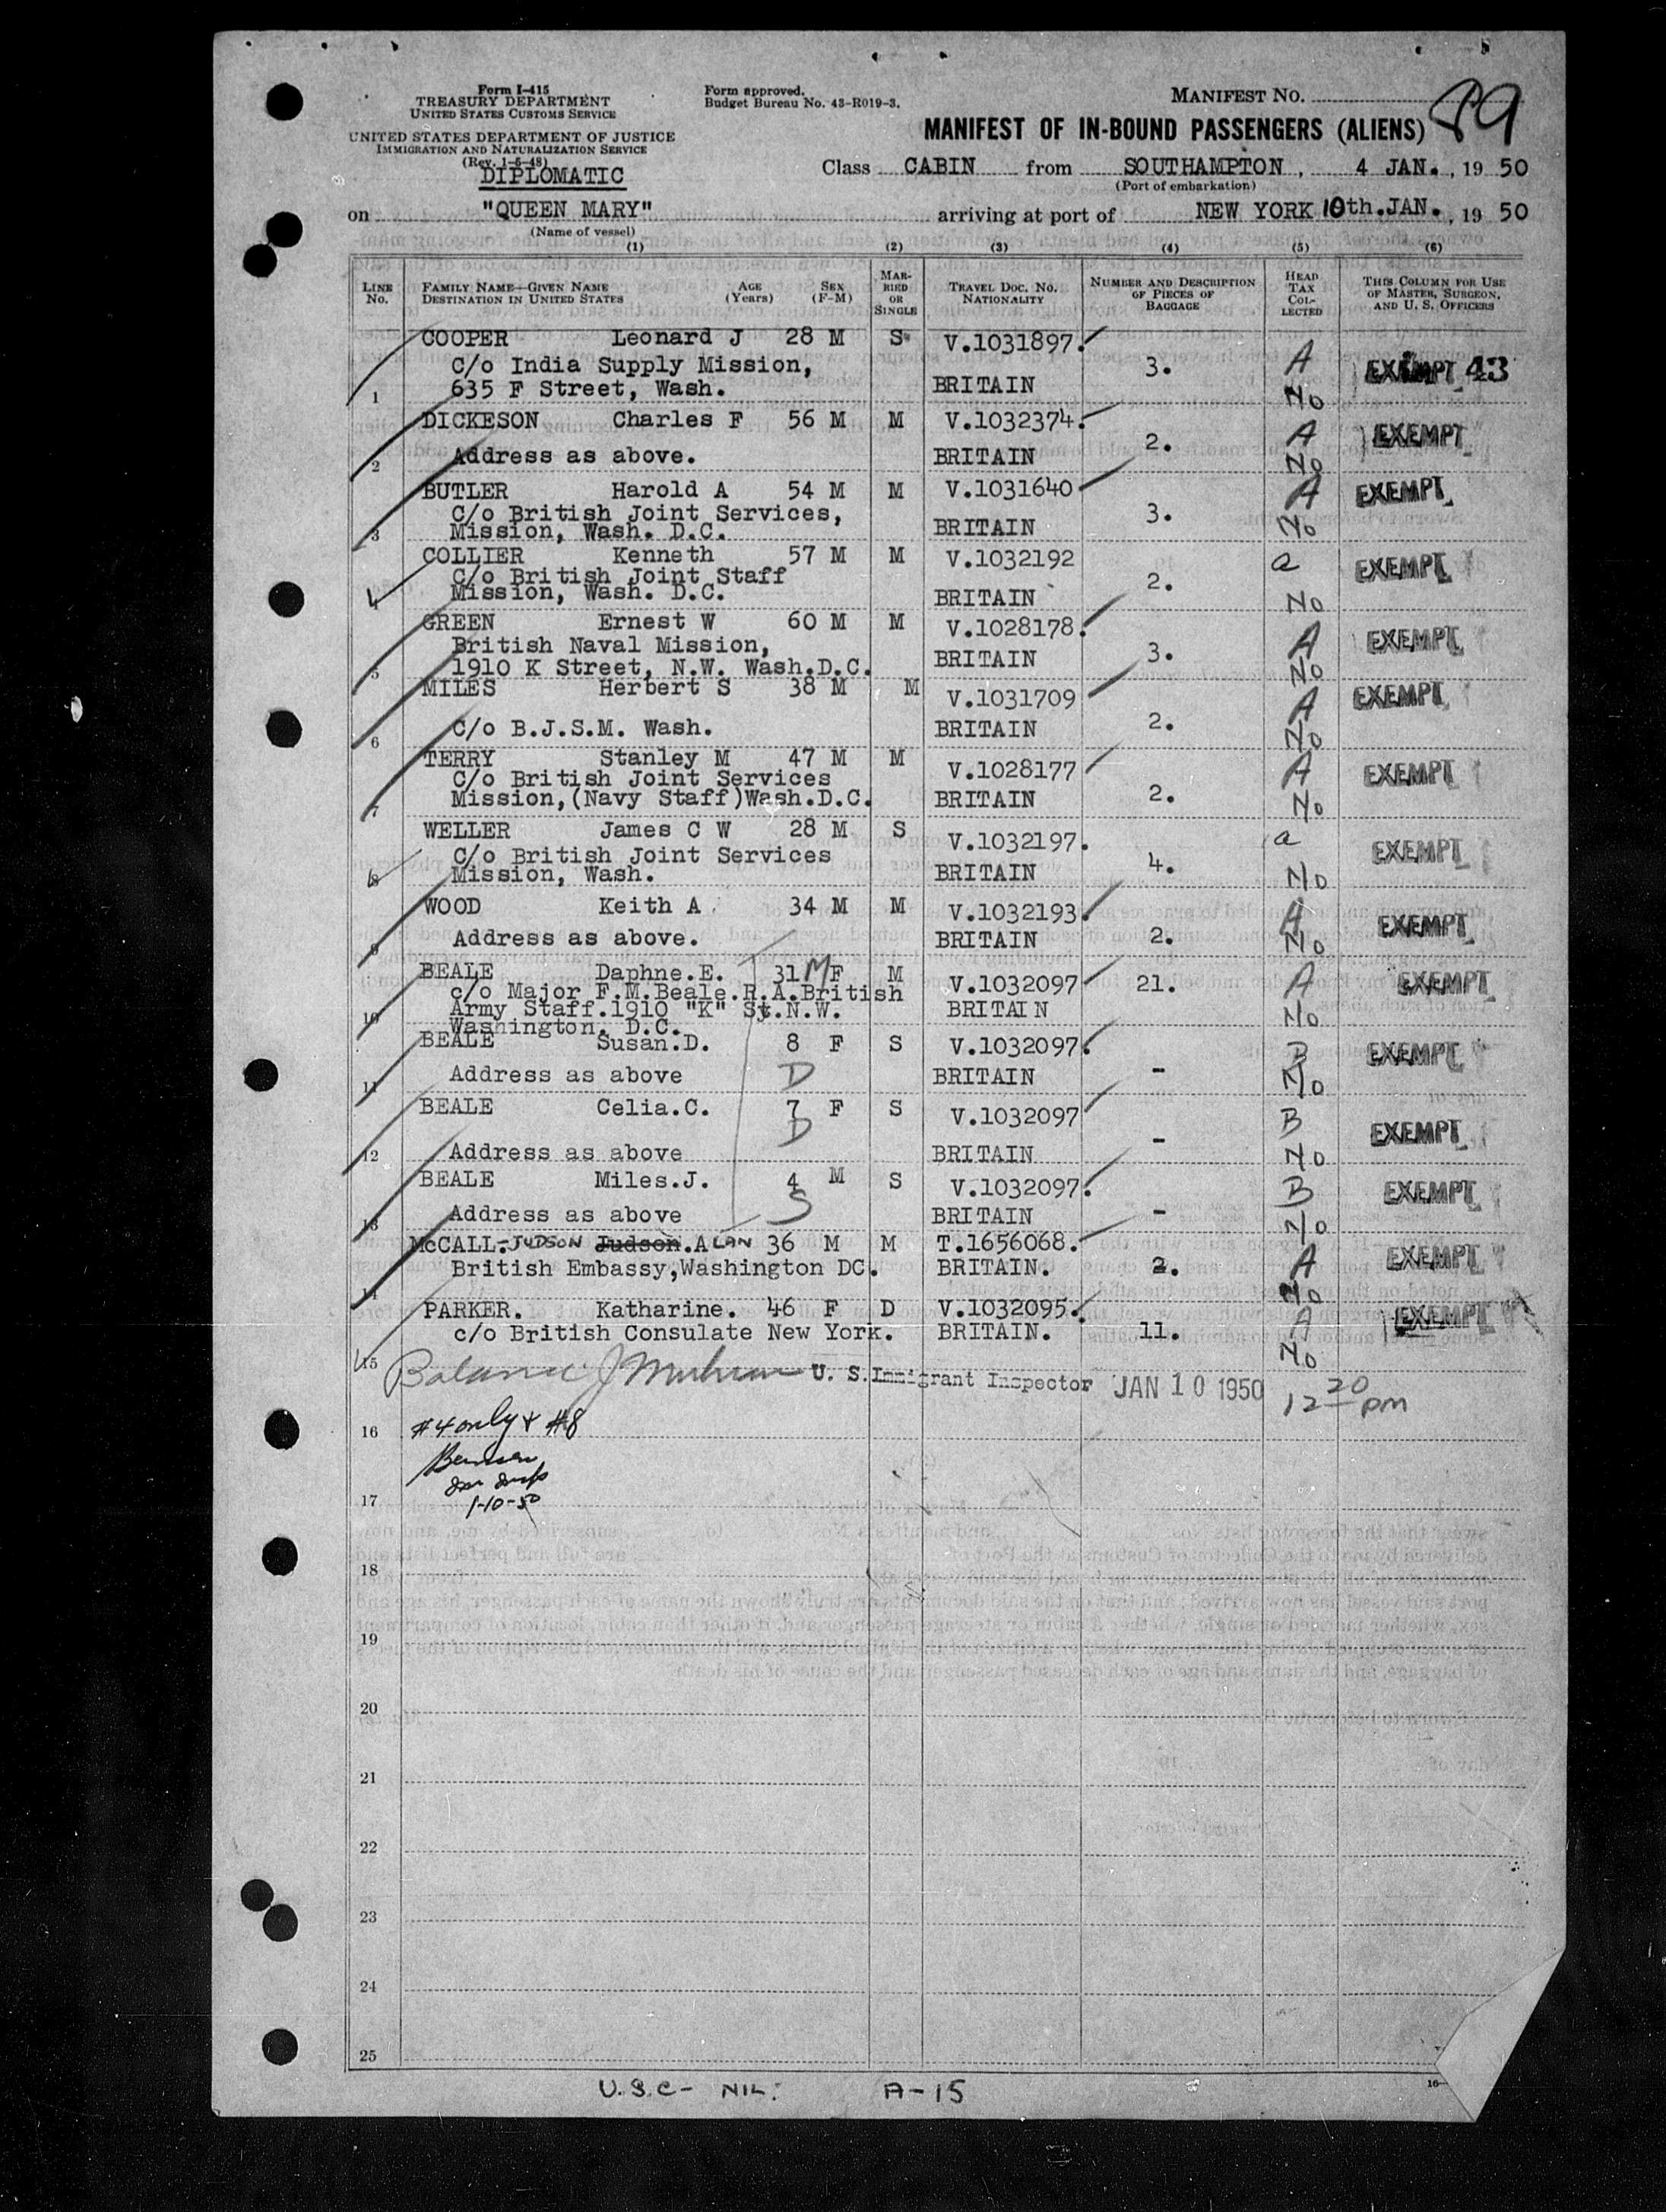 Form I-415
TREASURY DEPARTMENT
UNITED STATES CUSTOMS SERVICE
UNITED STATES DEPARTMENT OF JUSTICE
IMMIGRATION AND NATURALIZATION SERVICE
(Rev. 1-5-48)
DIPLOMATIC
Form approved.
Budget Bureau No. 43-R019-3.
MANIFEST NO. 89
MANIFEST OF IN-BOUND PASSENGERS (ALIENS)
Class CABIN from SOUTHAMPTON, 4 JAN., 19 50
(Port of embarkation)
on "QUEEN MARY" arriving at port of NEW YORK 10th.JAN., 19 50
(Name of vessel)
(1) (2) (3) (4) (5) (6)
LINE No. FAMILY NAME—GIVEN NAME DESTINATION IN UNITED STATES AGE (Years) SEX (F-M) MARRIED OR SINGLE TRAVEL DOC. NO. NATIONALITY NUMBER AND DESCRIPTION OF PIECES OF BAGGAGE HEAD TAX COLLECTED THIS COLUMN FOR USE OF MASTER, SURGEON, AND U. S. OFFICERS
COOPER Leonard J 28 M S V.1031897.
C/o India Supply Mission, 3. A EXEMPT 43
1 635 F Street, Wash. BRITAIN No
DICKESON Charles F 56 M M V.1032374. A EXEMPT
2 Address as above. BRITAIN 2. No
BUTLER Harold A 54 M M V.1031640 A EXEMPT
C/o British Joint Services, 3.
3 Mission, Wash. D.C. BRITAIN No
COLLIER Kenneth 57 M M V.1032192 a EXEMPT
C/o British Joint Staff 2.
4 Mission, Wash. D.C. BRITAIN No
GREEN Ernest W 60 M M V.1028178. A EXEMPT
British Naval Mission, 3.
5 1910 K Street, N.W. Wash.D.C. BRITAIN No
MILES Herbert S 38 M M V.1031709 A EXEMPT
6 C/o B.J.S.M. Wash. BRITAIN 2. No
TERRY Stanley M 47 M M V.1028177 A EXEMPT
C/o British Joint Services
7 Mission,(Navy Staff)Wash.D.C. BRITAIN 2. No
WELLER James C W 28 M S V.1032197. a EXEMPT
C/o British Joint Services 4.
8 Mission, Wash. BRITAIN No
WOOD Keith A. 34 M M V.1032193. A EXEMPT
9 Address as above. BRITAIN 2. No
BEALE Daphne.E. 31 M F M V.1032097 21. A EXEMPT
c/o Major F.M.Beale.R.A.British
10 Army Staff.1910 "K" St.N.W. BRITAIN No
Washington. D.C.
BEALE Susan.D. 8 F S V.1032097. B EXEMPT
11 Address as above D BRITAIN - No
BEALE Celia.C. 7 F S V.1032097 B EXEMPT
D
12 Address as above BRITAIN - No
BEALE Miles.J. 4 M S V.1032097. B EXEMPT
13 Address as above S BRITAIN - No
McCALL.-JUDSON Judson.ALAN 36 M M T.1656068.
14 British Embassy,Washington DC. BRITAIN. 2. A No EXEMPT
PARKER. Katharine. 46 F D V.1032095. A EXEMPT
c/o British Consulate New York. BRITAIN. 11.
15 No
U. S. Immigrant Inspector JAN 10 1950 12 20 pm
16 #4 only & #8
17 1-10-50
18
19
20
21
22
23
24
25
U.S.C- NIL: A-15
16-